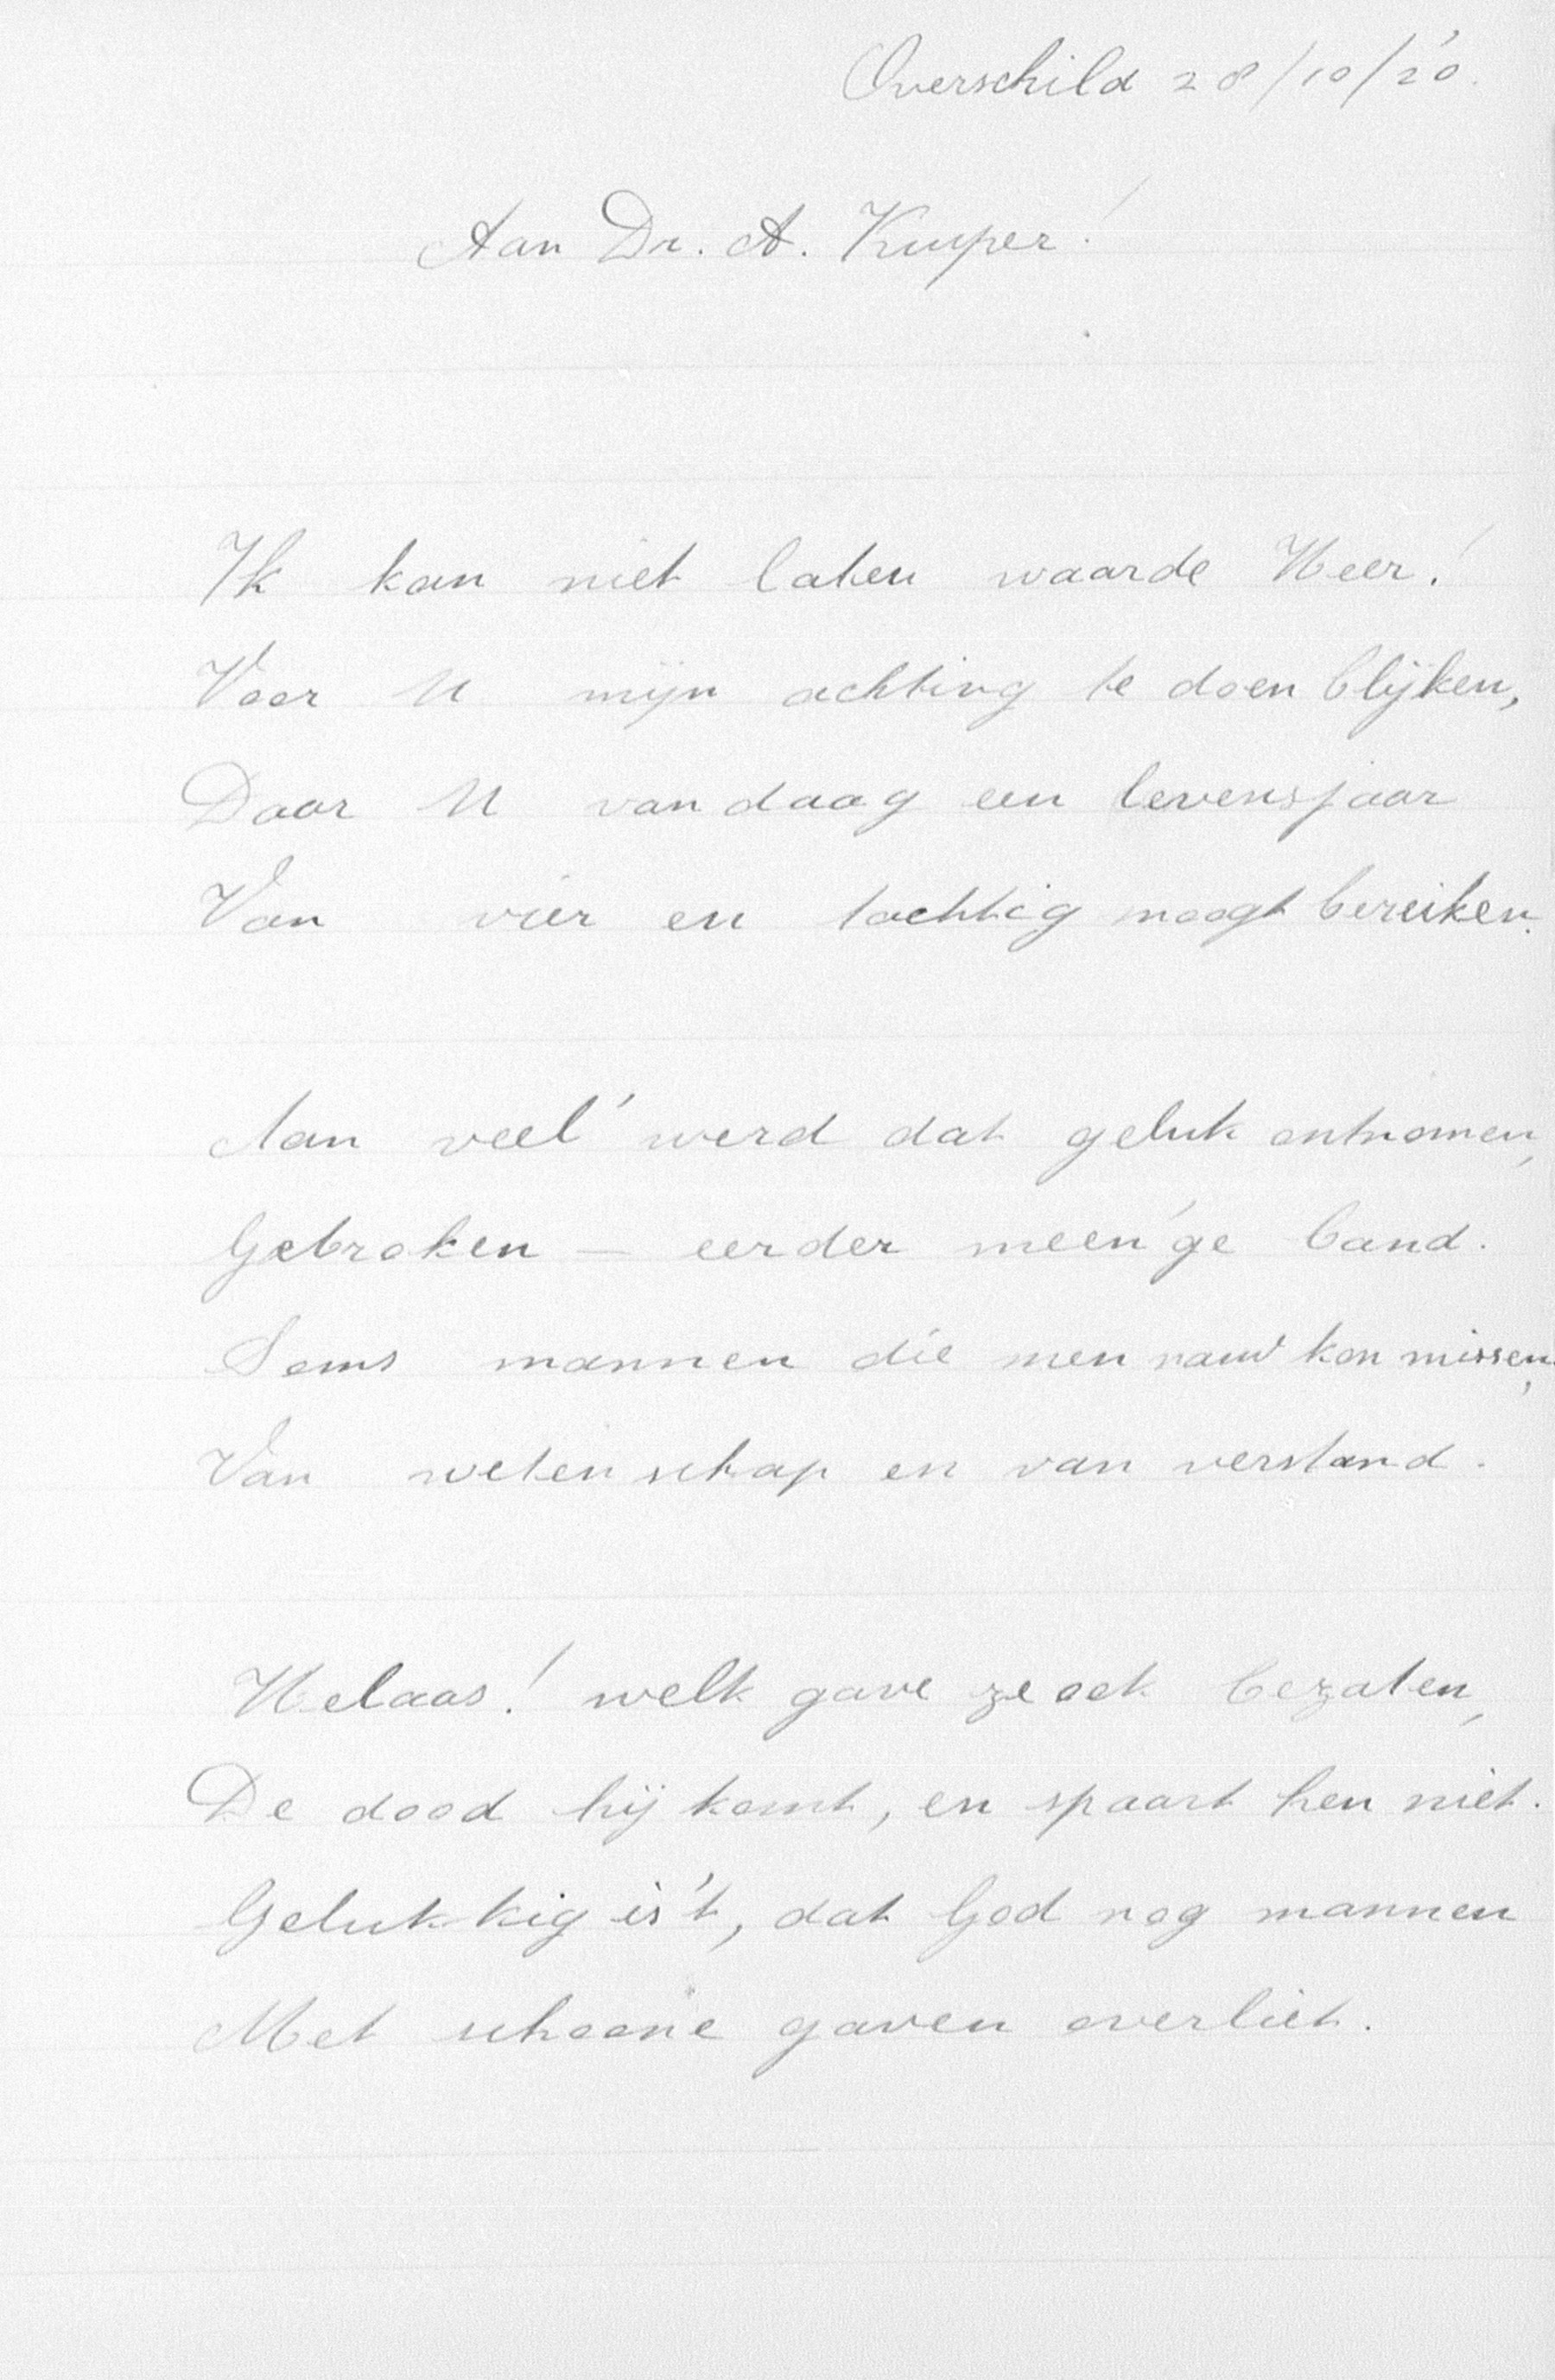 Overschild 28/10/'20.
Aan Dr. A. Kuyper!
Ik kan niet laten waarde Heer!
Voor U mijn achting te doen blijken,
Daar U van daag een levensjaar
Van vier en tachtig moogt bereiken.
Aan veel' werd dat geluk ontnomen,
Gebroken – eerder meen'ge band.
Soms mannen die men nauw kon missen,
Van wetenschap en van verstand.
Helaas! welk gave ze ook bezaten,
De dood hij komt, en spaart hen niet.
Gelukkig is't, dat God nog mannen
Met schoone gaven overliet.